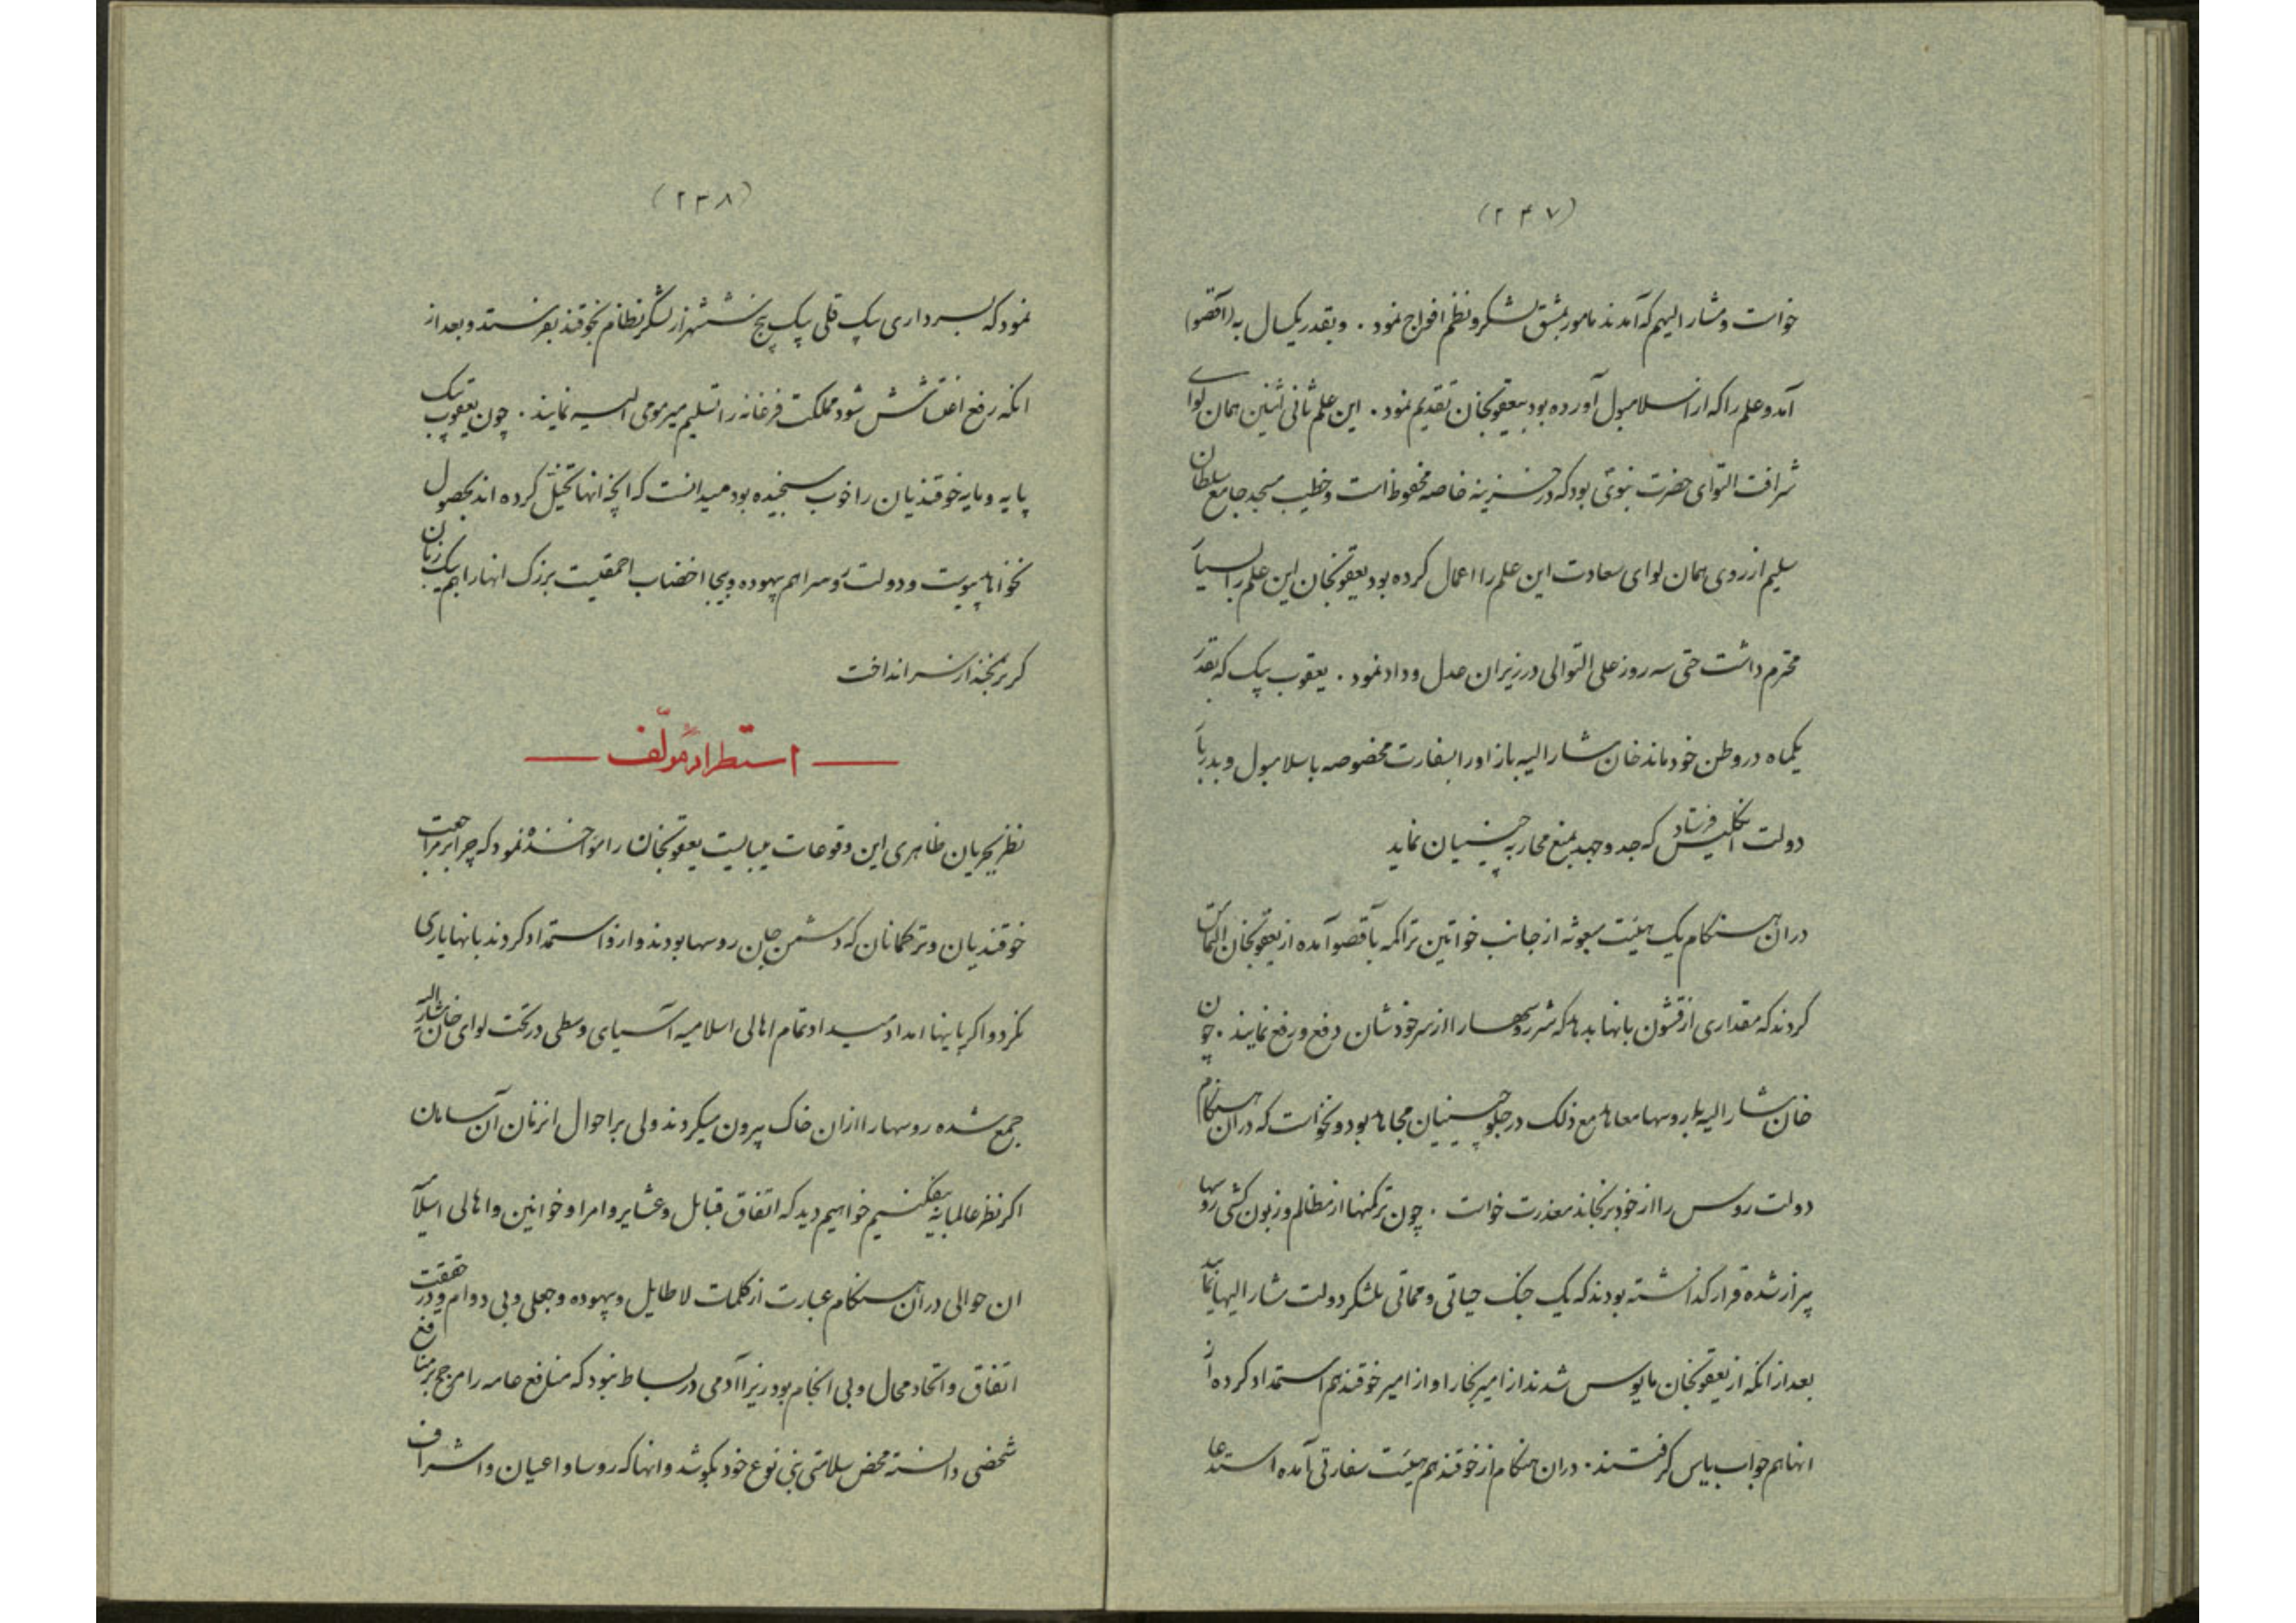 (۲۴۷)
خواست و مشار الیهم که آمدند مامور بمشق لشکر و نظم افواج نمود . و بقدر یکسال به (آقصو)
آمد و علم را که از اسلامبول آورده بود بیعقوبخان تقدیم نمود . این علم ثانی اثنین همان لوای
شرافت التوای حضرت نبوی بود که در خزینه خاصه محفوظ است و خطیب مسجد جامع سلطان
سلیم از روی همان لوای سعادت این علم را اعمال کرده بود یعقوبخان این علم را بسیار
محترم داشت حتی سه روز علی التوالی در زیر ان عدل و داد نمود . یعقوب بیک که بقدر
یکماه در وطن خود ماند خان مشار الیه باز او را بسفارت مخصوصه باسلامبول و بدربار
دولت انکلیس فرستاد که جد و جهد بمنع محاربه چینیان نماید
در ان هنکام یک هیئت مبعوثه از جانب خواتین تراکمه بآقصو آمده از یعقوبخان التماس
کردند که مقداری از قشون بانها بدهد که شر روسها را از سر خودشان دفع و رفع نمایند . چون
خان مشار الیه با روسها معاهد مع ذلک در جلو چینیان مجاهد بود و نخواست که در ان هنکام
دولت روس را از خود برنجاند معذرت خواست . چون ترکمنها از مظالم و زبون کشی روسها
بیزار شده قرار کذاشته بودند که یک جنک حیاتی و مماتی بلشکر دولت مشار الیها نمایند
بعد از انکه از یعقوبخان مایوس شدند از امیر بخارا و از امیر خوقند هم استمداد کرده از
انها هم جواب یاس کرفتند . در ان هنکام از خوقند هم هیئت سفارتی آمده استدعا
(۲۴۸)
نمود که بسرداری بیک قلی بیک پنج ششهزار لشکر نظام بخوقند بفرستد و بعد از
انکه رفع اغتشاش شود مملکت فرغانه را تسلیم میر مومی الیه نمایند . چون یعقوب بیک
پایه و مایه خوقندیان را خوب سنجیده بود میدانست که انچه انها تخیل کرده اند بحصول
نخواهد پیوست و دولت روس را هم بیهوده و بیجا اغضاب احمقیت بزرک انها را هم بیک زبان
کریز بخند از سر انداخت
— استطراد مؤلف —
نظر بجریان ظاهری این وقوعات میبایست یعقوبخان را مؤاخذه نمود که چرا بر مراجعت
خوقندیان و ترکمانان که دشمن جان روسها بودند و از او استمداد کردند بانها یاری
نکرد و اکر باینها امداد میداد تمام اهالی اسلامیه آسیای وسطی در تحت لوای خان مشار الیه
جمع شده روسها را از ان خاک بیرون میکردند ولی بر احوال انزمان آن سامان
اکر نظر عالمانه بیفکنیم خواهیم دید که اتفاق قبائل و عشایر و امرا و خوانین و اهالی اسلام
ان حوالی در ان هنکام عبارت از کلمات لا طایل و بیهوده و جعلی و بی دوام و در حقیقت
اتفاق و اتحاد محال و بی انجام بود زیرا آدمی در بساط نبود که منافع عامه را مرجح بر منافع
شخصی دانسته محض سلامتی بنی نوع خود بکوشد و انها که روسا و اعیان و اشراف